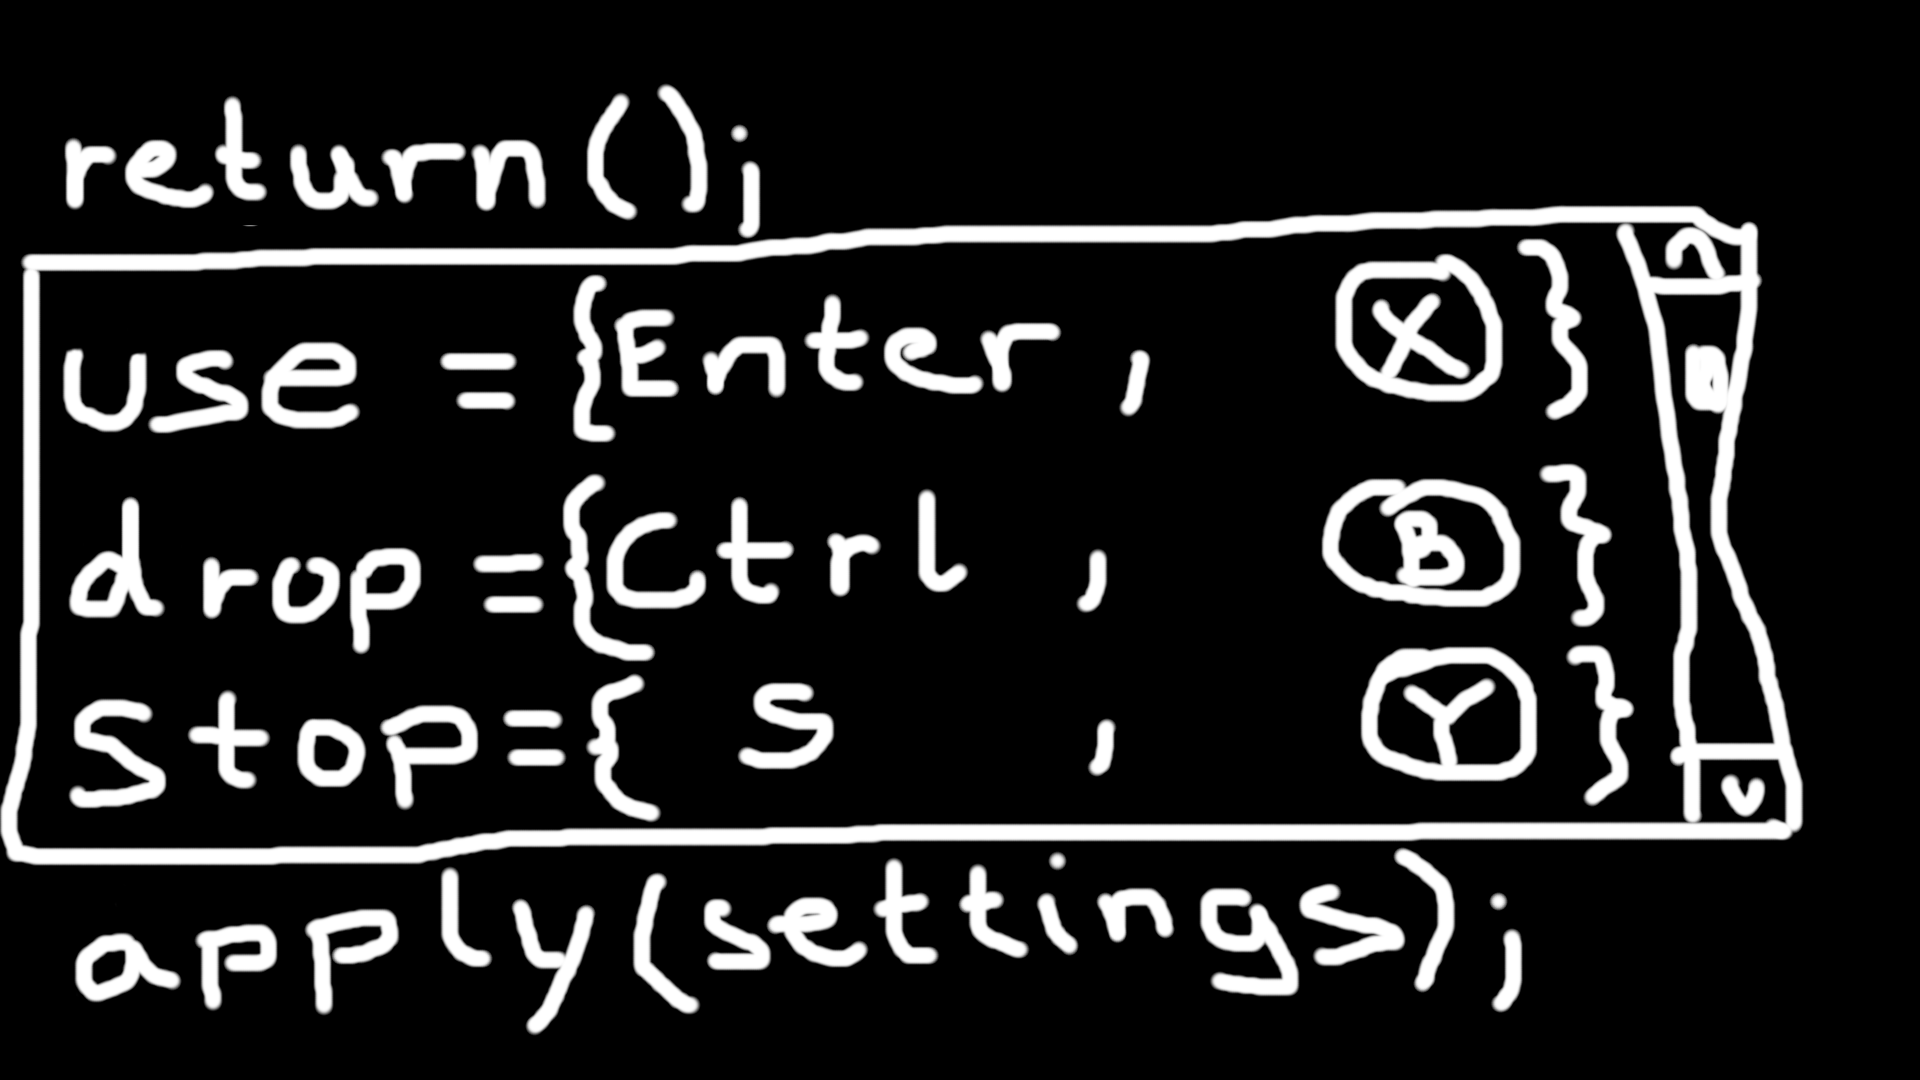 return();
use = {Enter, X}
drop = {Ctrl, B}
stop = {s, Y}
apply(settings);